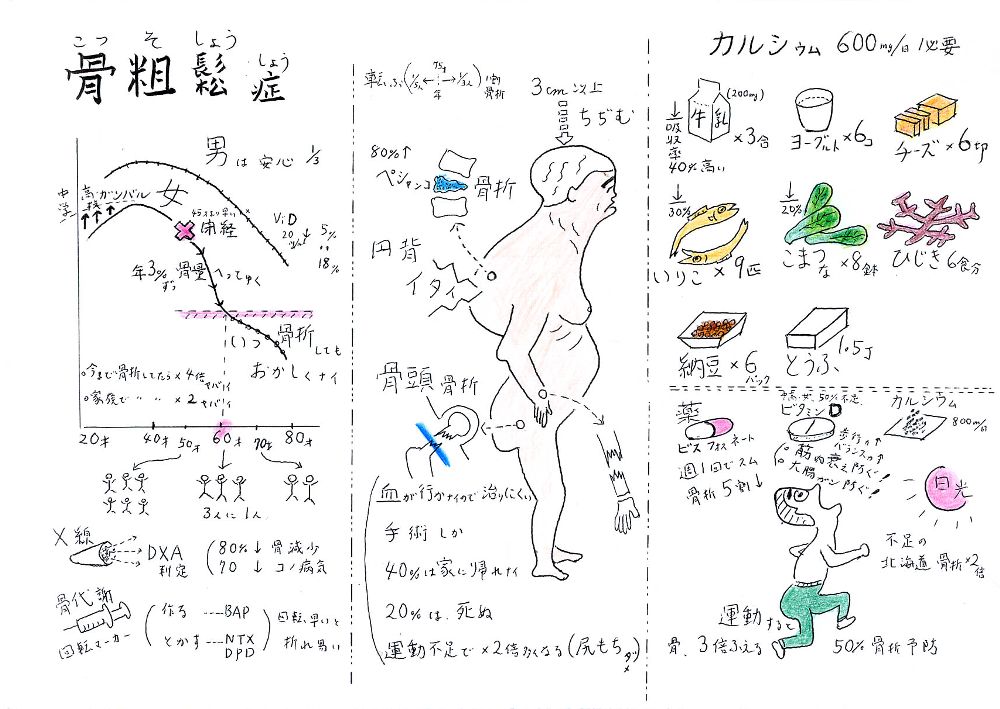 こつ そ しょう しょう
骨粗鬆症
男は安心 1/3
中学
高校 ガンバル
女
45才より早い×
閉経
ViD
20
5%
18%
年3%ずつ 骨量へってゆく
いつ骨折しても
おかしくナイ
今まで骨折してたら×4倍 ヤバイ
家族で 〃 〃 ×2 ヤバイ
20才 40才 50才 60才 70才 80才
3人に1人
X線
DXA
判定
80%↓ 骨減少
70 ↓ コノ病気
骨代謝
回転マーカー
作る ---- BAP
とかす ---- NTX
DPD
回転早いと
折れ易い
75才
年
骨折
3cm以上
ちぢむ
80%↑
ペシャンコ 骨折
円背
イタイ
骨頭骨折
血が行かナイので治りにくい
手術しか
40%は家に帰れナイ
20%は死ぬ
運動不足で×2倍多くなる(尻もちダメ)
カルシウム 600mg/日 必要
牛乳
(200mg)
×3合
↓
吸収率
40%高い
ヨーグルト×6コ
チーズ×6cp
↓
30%
いりこ×9匹
↓
20%
こまつな×8鉢
ひじき6食分
納豆×6パック
とうふ 1.5丁
薬
ビスフォスネート
週1回でスム
骨折5割↓
50%不足
ビタミンD
歩行の↑
バランスの↑
筋肉衰え防ぐ!
大腸ガン防ぐ!
カルシウム
800m/日
日光
不足の
北海道 骨折×2倍
運動すると
骨、3倍ふえる
50%骨折予防